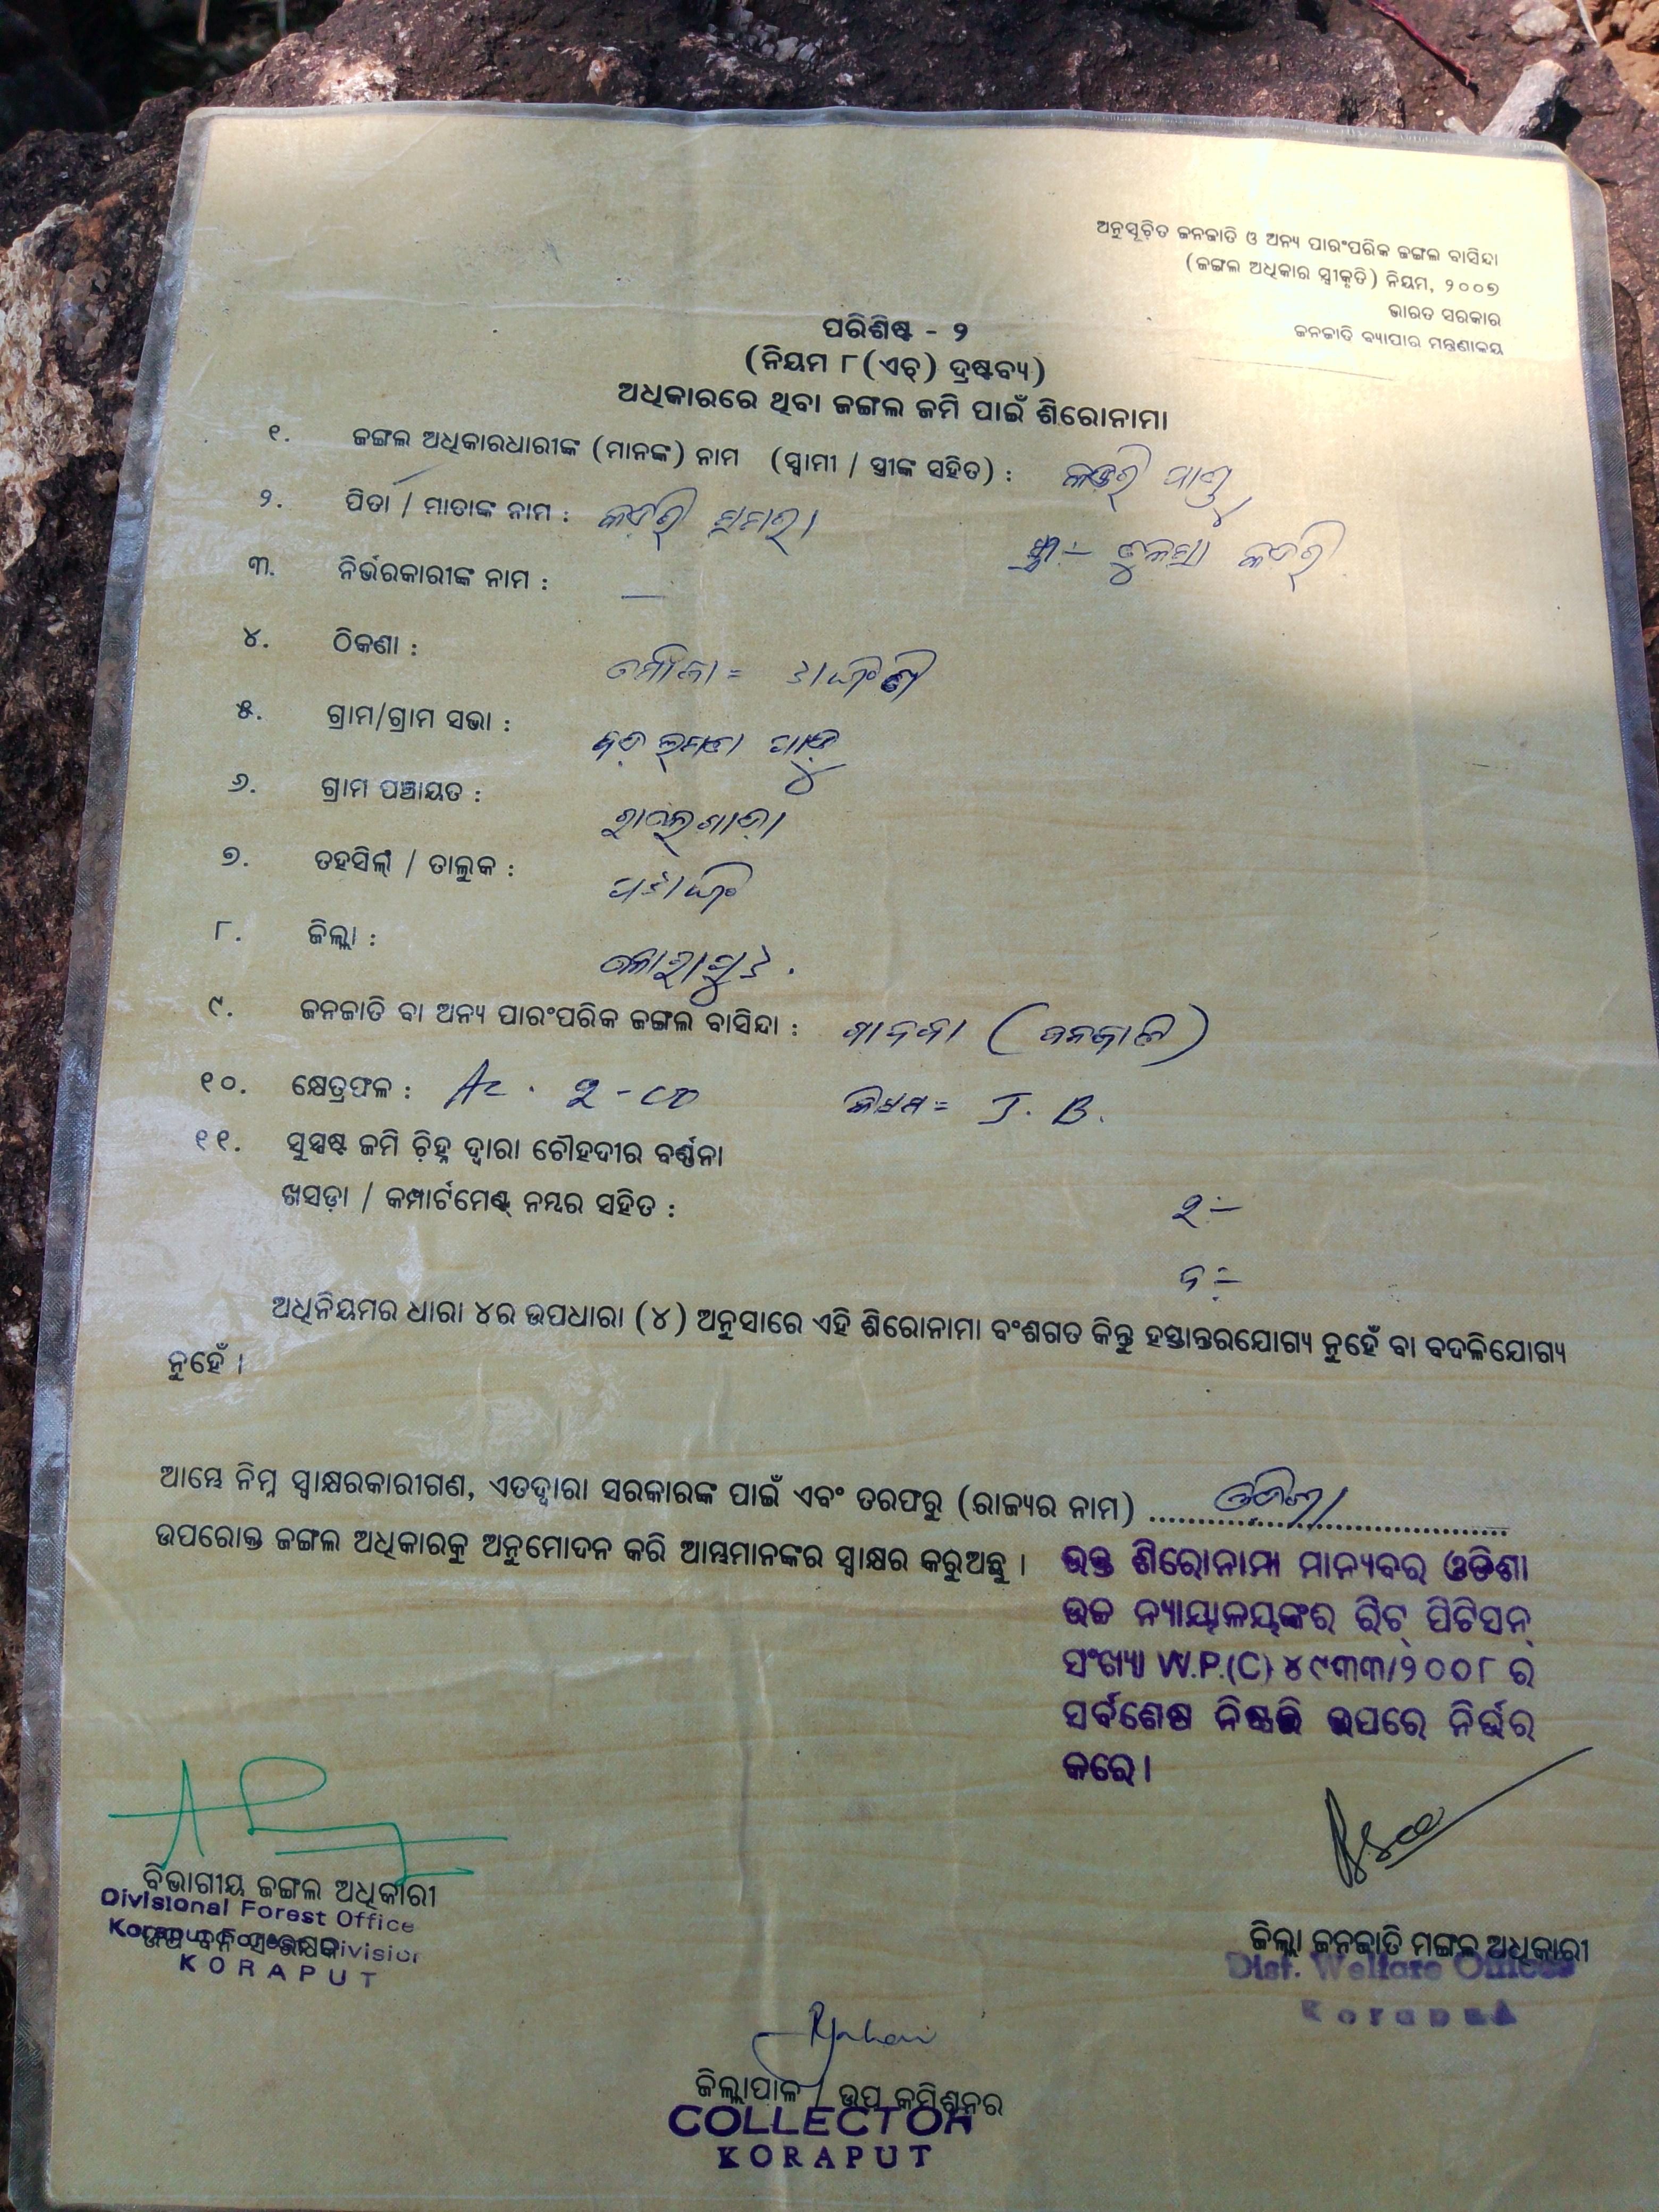 ଅନୁସୂଚିତ ଜନଜାତି ଓ ଅନ୍ୟ ପାରଂପରିକ ଜଙ୍ଗଲ ବାସିନ୍ଦା
(ଜଙ୍ଗଲ ଅଧିକାର ସ୍ୱୀକୃତି) ନିୟମ, ୨୦୦୭
ଭାରତ ସରକାର
ଜନଜାତି ବ୍ୟାପାର ମନ୍ତ୍ରଣାଳୟ
ପରିଶିଷ୍ଟ - ୨
(ନିୟମ ୮(ଏଚ୍) ଦ୍ରଷ୍ଟବ୍ୟ)
ଅଧିକାରରେ ଥିବା ଜଙ୍ଗଲ ଜମି ପାଇଁ ଶିରୋନାମା
୧. ଜଙ୍ଗଲ ଅଧିକାରଧାରୀଙ୍କ (ମାନଙ୍କ) ନାମ (ସ୍ୱାମୀ / ସ୍ତ୍ରୀଙ୍କ ସହିତ) :
୨. ପିତା / ମାତାଙ୍କ ନାମ :
ସ୍ତ୍ରୀ :-
୩. ନିର୍ଭରକାରୀଙ୍କ ନାମ : —
୪. ଠିକଣା : ମୌଜା =
୫. ଗ୍ରାମ/ଗ୍ରାମ ସଭା :
୬. ଗ୍ରାମ ପଞ୍ଚାୟତ :
୭. ତହସିଲ୍ / ତାଲୁକ : ପଟାଙ୍ଗି
୮. ଜିଲ୍ଲା : କୋରାପୁଟ.
୯. ଜନଜାତି ବା ଅନ୍ୟ ପାରଂପରିକ ଜଙ୍ଗଲ ବାସିନ୍ଦା : (ଜନଜାତି)
୧୦. କ୍ଷେତ୍ରଫଳ : Ac. ୨-00 କିସମ = J. B.
୧୧. ସୁସ୍ପଷ୍ଟ ଜମି ଚିହ୍ନ ଦ୍ୱାରା ଚୌହଦୀର ବର୍ଣ୍ଣନା
ଖସଡ଼ା / କମ୍ପାର୍ଟମେଣ୍ଟ୍ ନମ୍ବର ସହିତ :
ଅଧିନିୟମର ଧାରା ୪ର ଉପଧାରା (୪) ଅନୁସାରେ ଏହି ଶିରୋନାମା ବଂଶଗତ କିନ୍ତୁ ହସ୍ତାନ୍ତରଯୋଗ୍ୟ ନୁହେଁ ବା ବଦଳିଯୋଗ୍ୟ
ନୁହେଁ ।
ଆମ୍ଭେ ନିମ୍ନ ସ୍ୱାକ୍ଷରକାରୀଗଣ, ଏତଦ୍ୱାରା ସରକାରଙ୍କ ପାଇଁ ଏବଂ ତରଫରୁ (ରାଜ୍ୟର ନାମ) ଓଡିଶା
ଉପରୋକ୍ତ ଜଙ୍ଗଲ ଅଧିକାରକୁ ଅନୁମୋଦନ କରି ଆମ୍ଭମାନଙ୍କର ସ୍ୱାକ୍ଷର କରୁଅଛୁ ।
ଉକ୍ତ ଶିରୋନାମା ମାନ୍ୟବର ଓଡିଶା
ଉଚ୍ଚ ନ୍ୟାୟାଳୟଙ୍କର ରିଟ୍ ପିଟିସନ୍
ସଂଖ୍ୟା W.P.(C) ୪୯୩୩/୨୦୦୮ ର
ସର୍ବଶେଷ ନିଷ୍ପତ୍ତି ଉପରେ ନିର୍ଭର
କରେ ।
ବିଭାଗୀୟ ଜଙ୍ଗଲ ଅଧିକାରୀ
Divisional Forest Office
ଉପ ବନ ସଂରକ୍ଷକ
Koraput Forest Division
KORAPUT
ଜିଲ୍ଲା ଜନଜାତି ମଙ୍ଗଳ ଅଧିକାରୀ
Dist. Welfare Officer
Koraput
ଜିଲ୍ଲାପାଳ / ଉପ କମିଶ୍ନର
COLLECTOR
KORAPUT